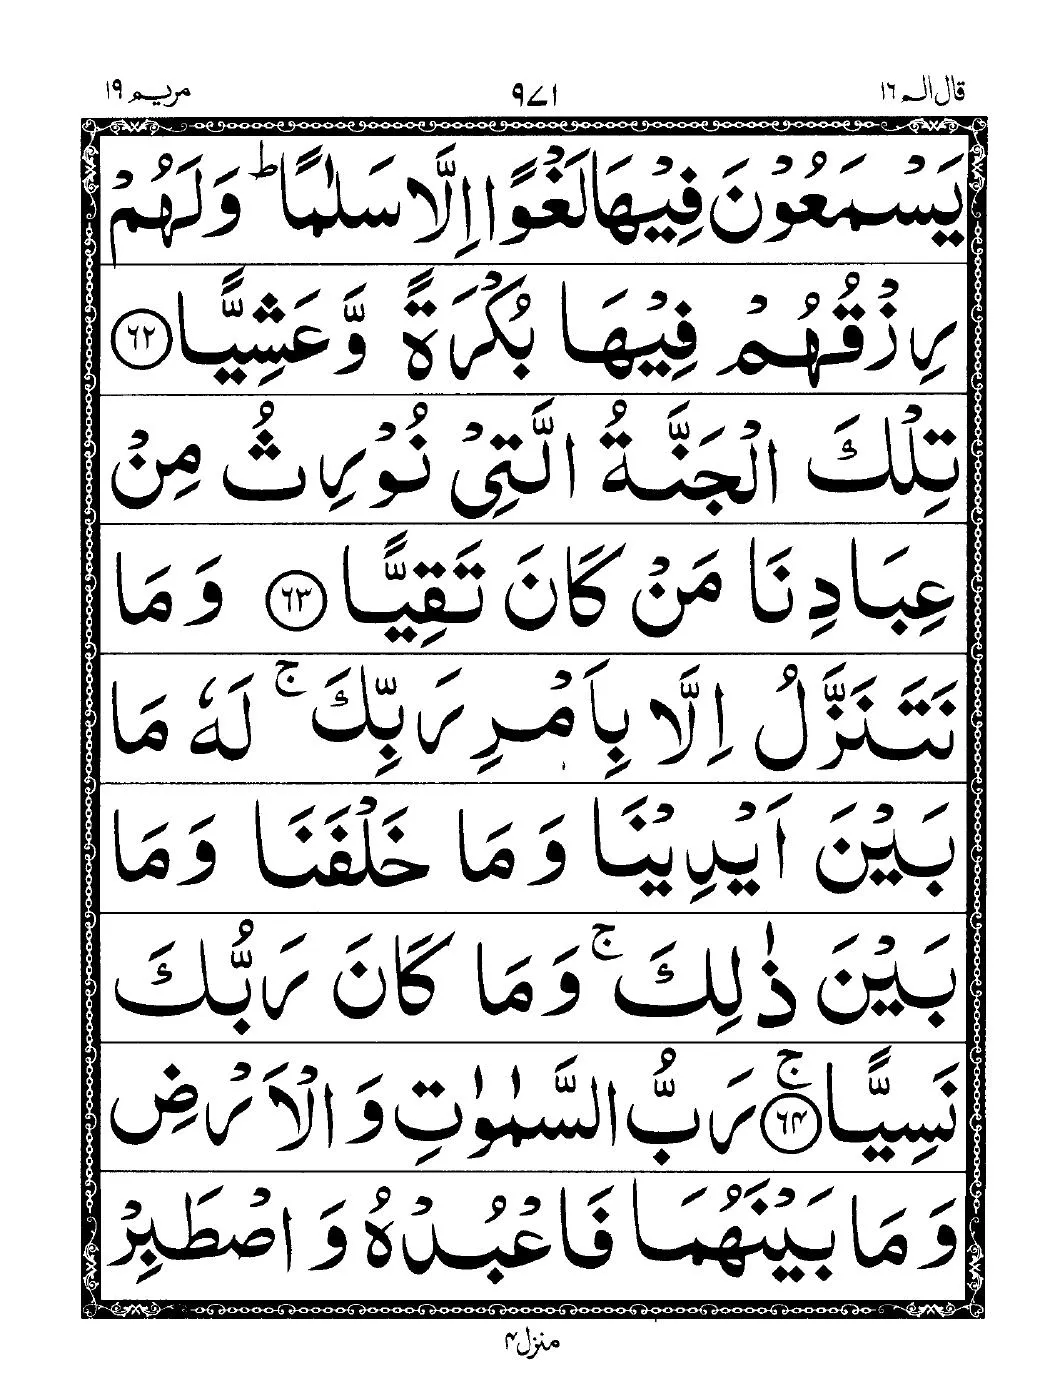 قال الم ١٦ ٩٧١ مريم ١٩
يَسْمَعُوْنَ فِيْهَا لَغْوًا اِلَّا سَلٰمًا ؕ وَلَهُمْ
رِزْقُهُمْ فِيْهَا بُكْرَةً وَّعَشِيًّا ٦٢
تِلْكَ الْجَنَّةُ الَّتِىْ نُوْرِثُ مِنْ
عِبَادِنَا مَنْ كَانَ تَقِيًّا ٦٣ وَمَا
نَتَنَزَّلُ اِلَّا بِاَمْرِ رَبِّكَ ۚ لَهٗ مَا
بَيْنَ اَيْدِيْنَا وَمَا خَلْفَنَا وَمَا
بَيْنَ ذٰلِكَ ۚ وَمَا كَانَ رَبُّكَ
نَسِيًّا ۚ ٦٤ رَبُّ السَّمٰوٰتِ وَالْاَرْضِ
وَمَا بَيْنَهُمَا فَاعْبُدْهُ وَاصْطَبِرْ
منزل ۴